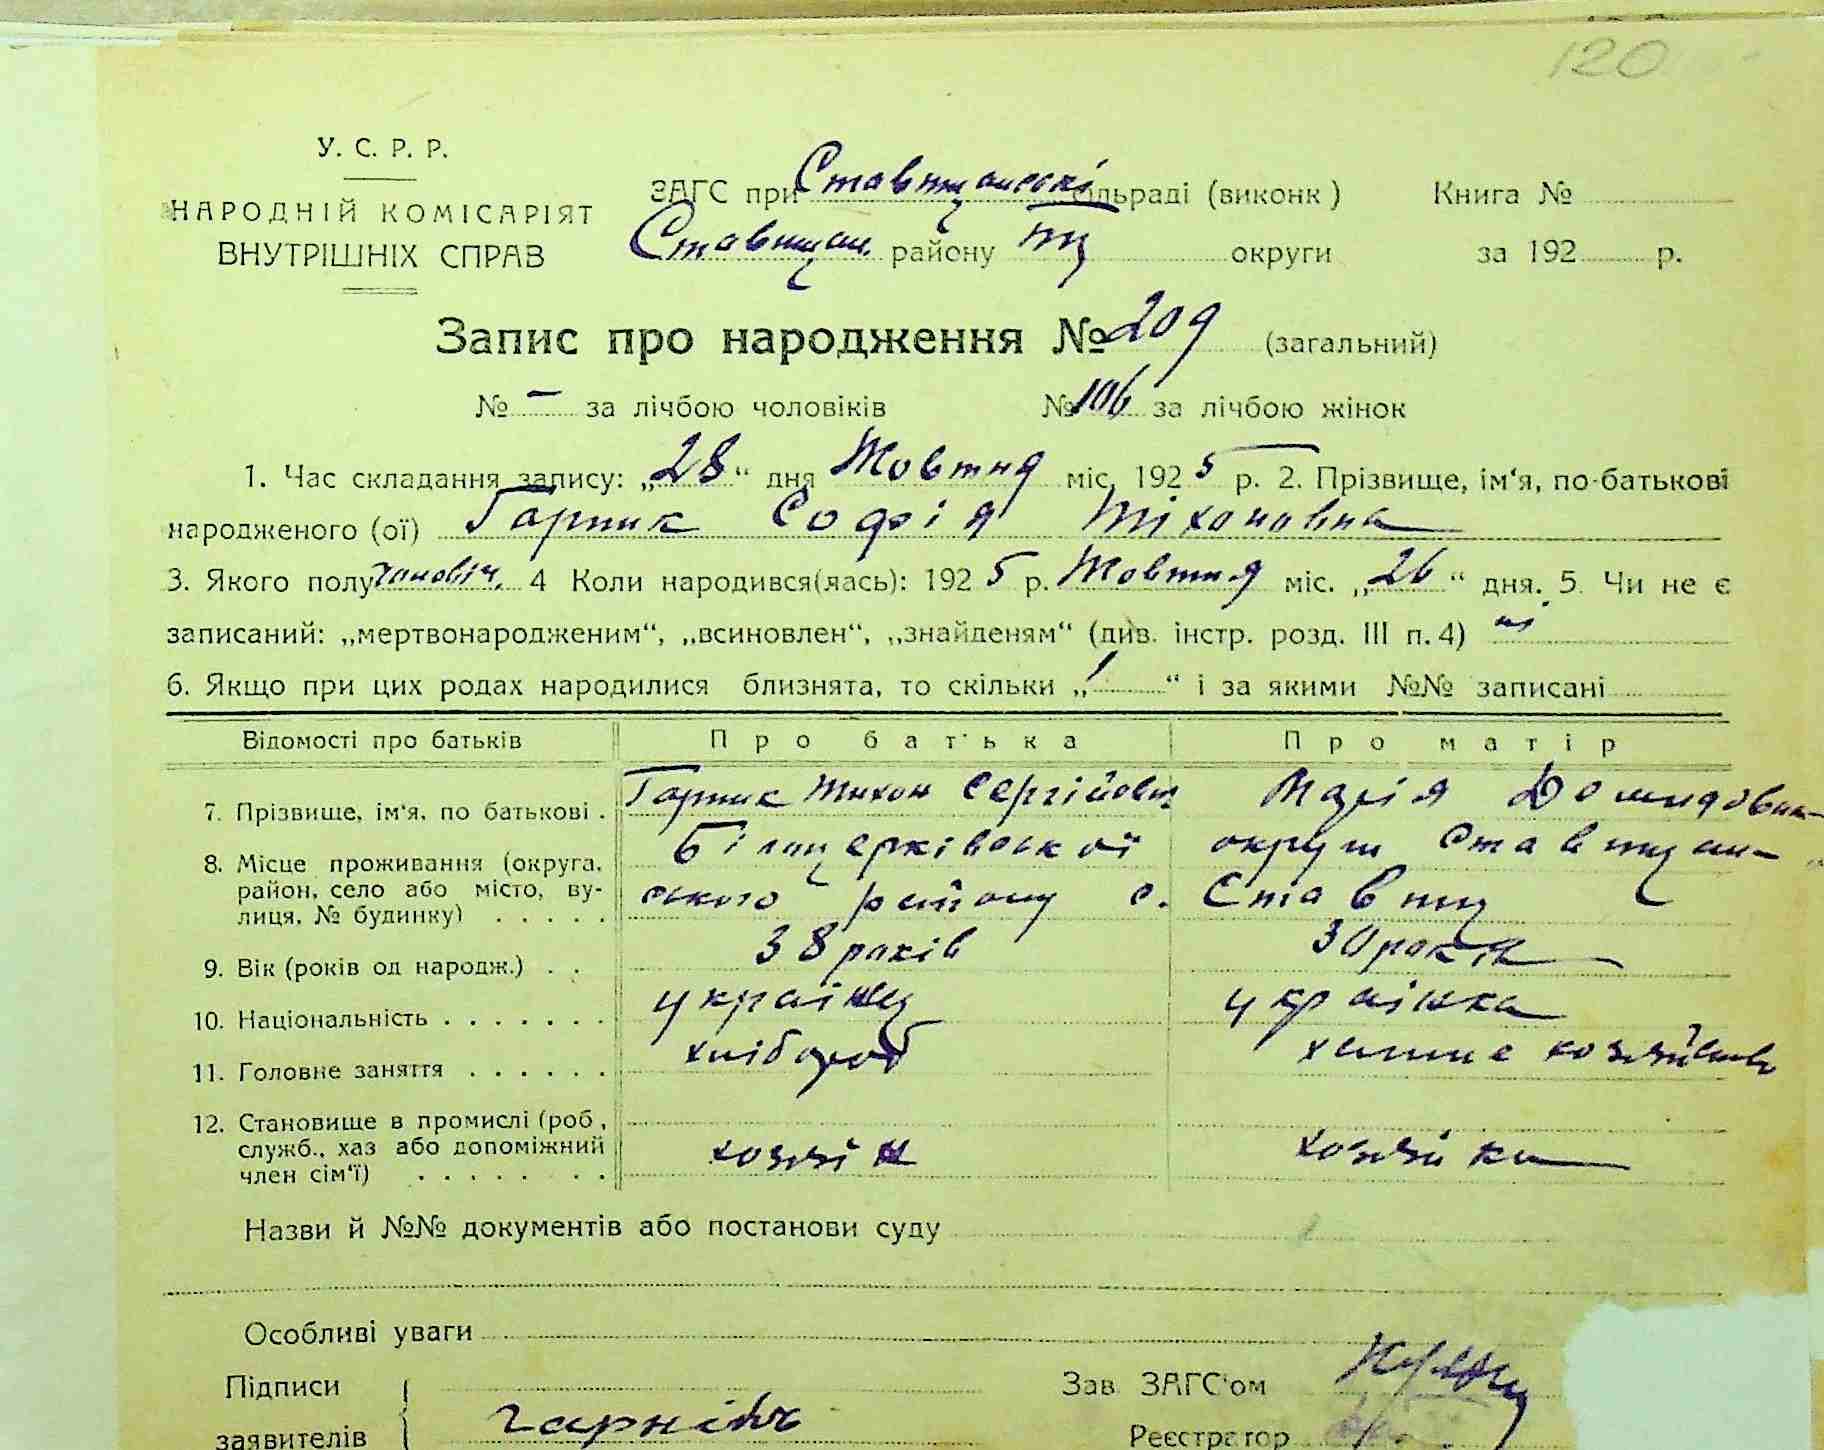 120
У. С. Р. Р.
НАРОДНІЙ КОМІСАРІЯТ
ВНУТРІШНІХ СПРАВ
ЗАГС при Ставищанскі сільраді (виконк ) Книга №
Ставищан. району БЦ округи за 192 р.
Запис про народження № 209 (загальний)
№ – за лічбою чоловіків № 106 за лічбою жінок
1. Час складання запису: „28“ дня Жовтня міс, 1925 р. 2. Прізвище, ім‘я, по-батькові
народженого (ої) Гарник Софія Тіхоновна
3. Якого полу 4 Коли народився(лась): 1925 р. Жовтня міс. „26“ дня. 5. Чи не є
записаний: „мертвонародженим“, „всиновлен“, „знайденям“ (див. інстр. розд. III п. 4) ні
6. Якщо при цих родах народилися близнята, то скільки „1“ і за якими №№ записані
Відомості про батьків Про батька Про матір
7. Прізвище, ім‘я, по батькові . Гарник Тихон Сергійович Марія
8. Місце проживання (округа, район, село або місто, вулиця, № будинку) . . . . . Білоцерківської округи Ставищан-
ського району с. Ставищ
9. Вік (років од народж.) . . 38 років 30 років
10. Національність . . . . . . . українец українка
11. Головне заняття . . . . . . хлібороб хатнє хозяйство
12. Становище в промислі (роб, служб., хаз або допоміжний член сім‘ї) . . . . . . . хозяїн хозяйка
Назви й №№ документів або постанови суду
Особливі уваги
Підписи
заявителів
Зав ЗАГС‘ом
Реєстратор